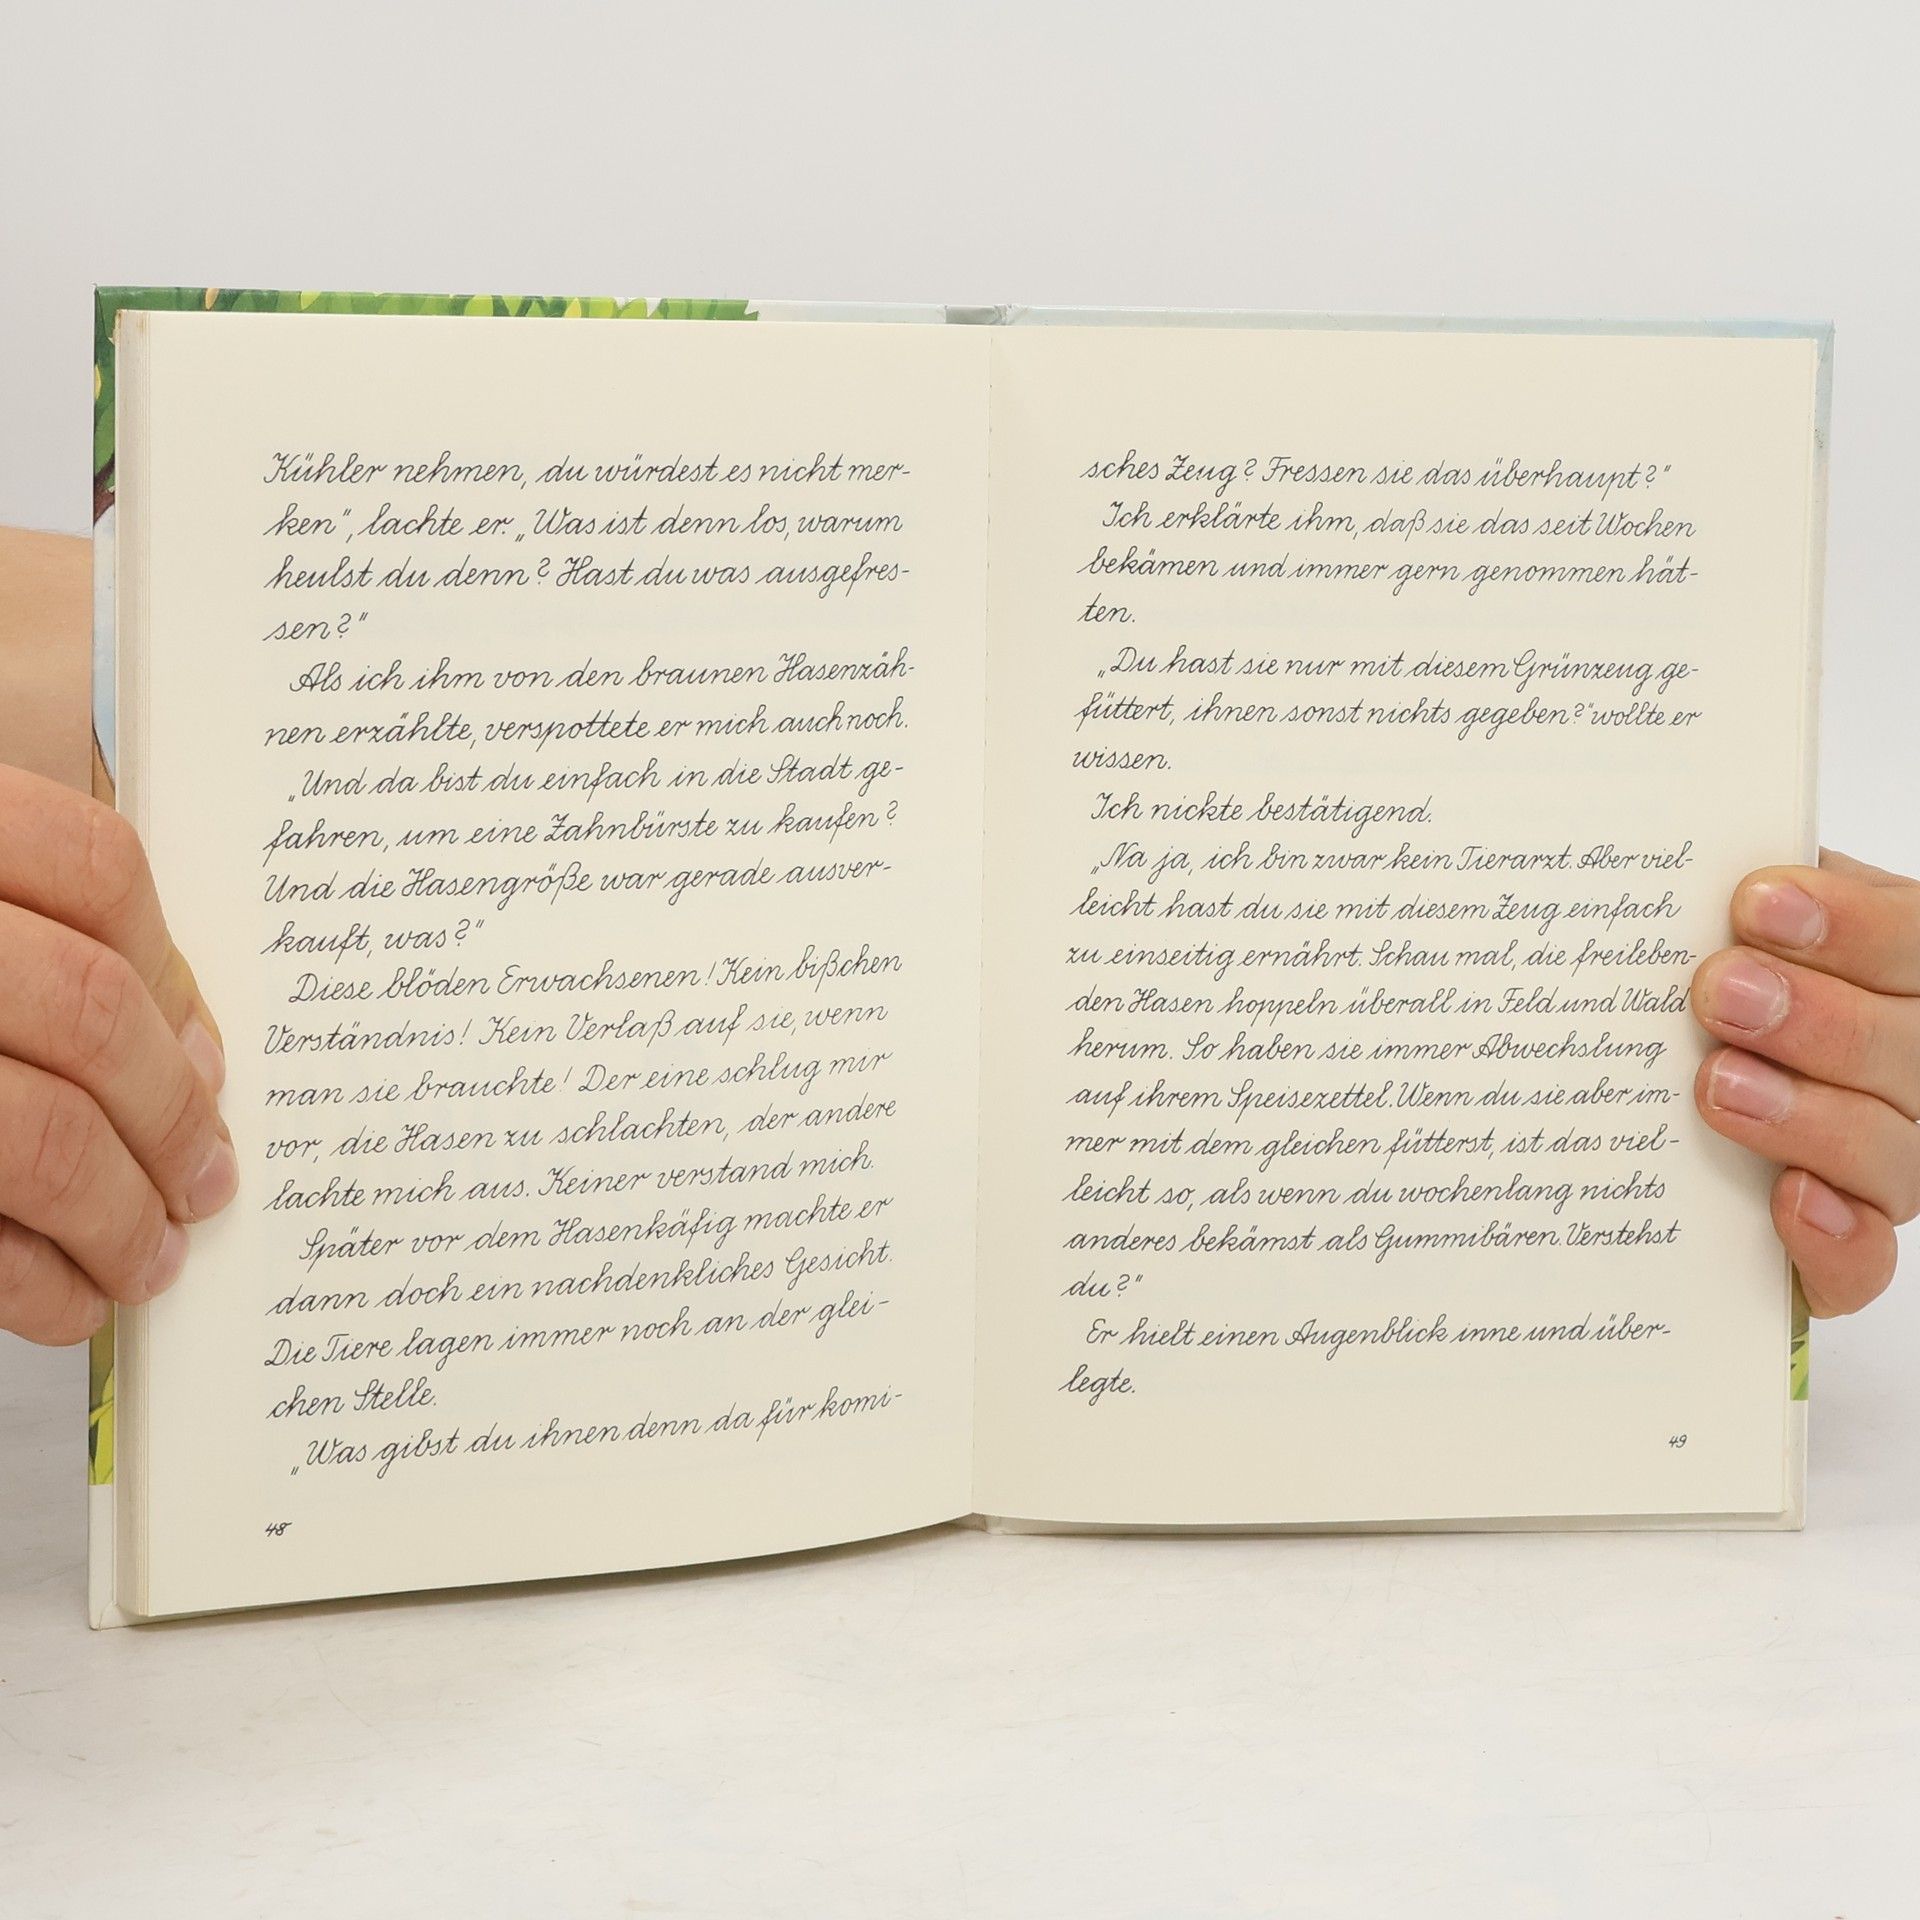 Kühler nehmen, du würdest es nicht mer-
ken", lachte er. „Was ist denn los, warum
heulst du denn? Hast du was ausgefres-
sen?"
Als ich ihm von den braunen Hasenzäh-
nen erzählte, verspottete er mich auch noch.
„Und da bist du einfach in die Stadt ge-
fahren, um eine Zahnbürste zu kaufen?
Und die Hasengröße war gerade ausver-
kauft, was?"
Diese blöden Erwachsenen! Kein bißchen
Verständnis! Kein Verlaß auf sie, wenn
man sie brauchte! Der eine schlug mir
vor, die Hasen zu schlachten, der andere
lachte mich aus. Keiner verstand mich.
Später vor dem Hasenkäfig machte er
dann doch ein nachdenkliches Gesicht.
Die Tiere lagen immer noch an der glei-
chen Stelle.
„Was gibst du ihnen denn da für komi-
48
sches Zeug? Fressen sie das überhaupt?"
Ich erklärte ihm, daß sie das seit Wochen
bekämen und immer gern genommen hät-
ten.
„Du hast sie nur mit diesem Grünzeug ge-
füttert, ihnen sonst nichts gegeben?" wollte er
wissen.
Ich nickte bestätigend.
„Na ja, ich bin zwar kein Tierarzt. Aber viel-
leicht hast du sie mit diesem Zeug einfach
zu einseitig ernährt. Schau mal, die freileben-
den Hasen hoppeln überall in Feld und Wald
herum. So haben sie immer Abwechslung
auf ihrem Speisezettel. Wenn du sie aber im-
mer mit dem gleichen fütterst, ist das viel-
leicht so, als wenn du wochenlang nichts
anderes bekämst als Gummibären. Verstehst
du?"
Er hielt einen Augenblick inne und über-
legte.
49